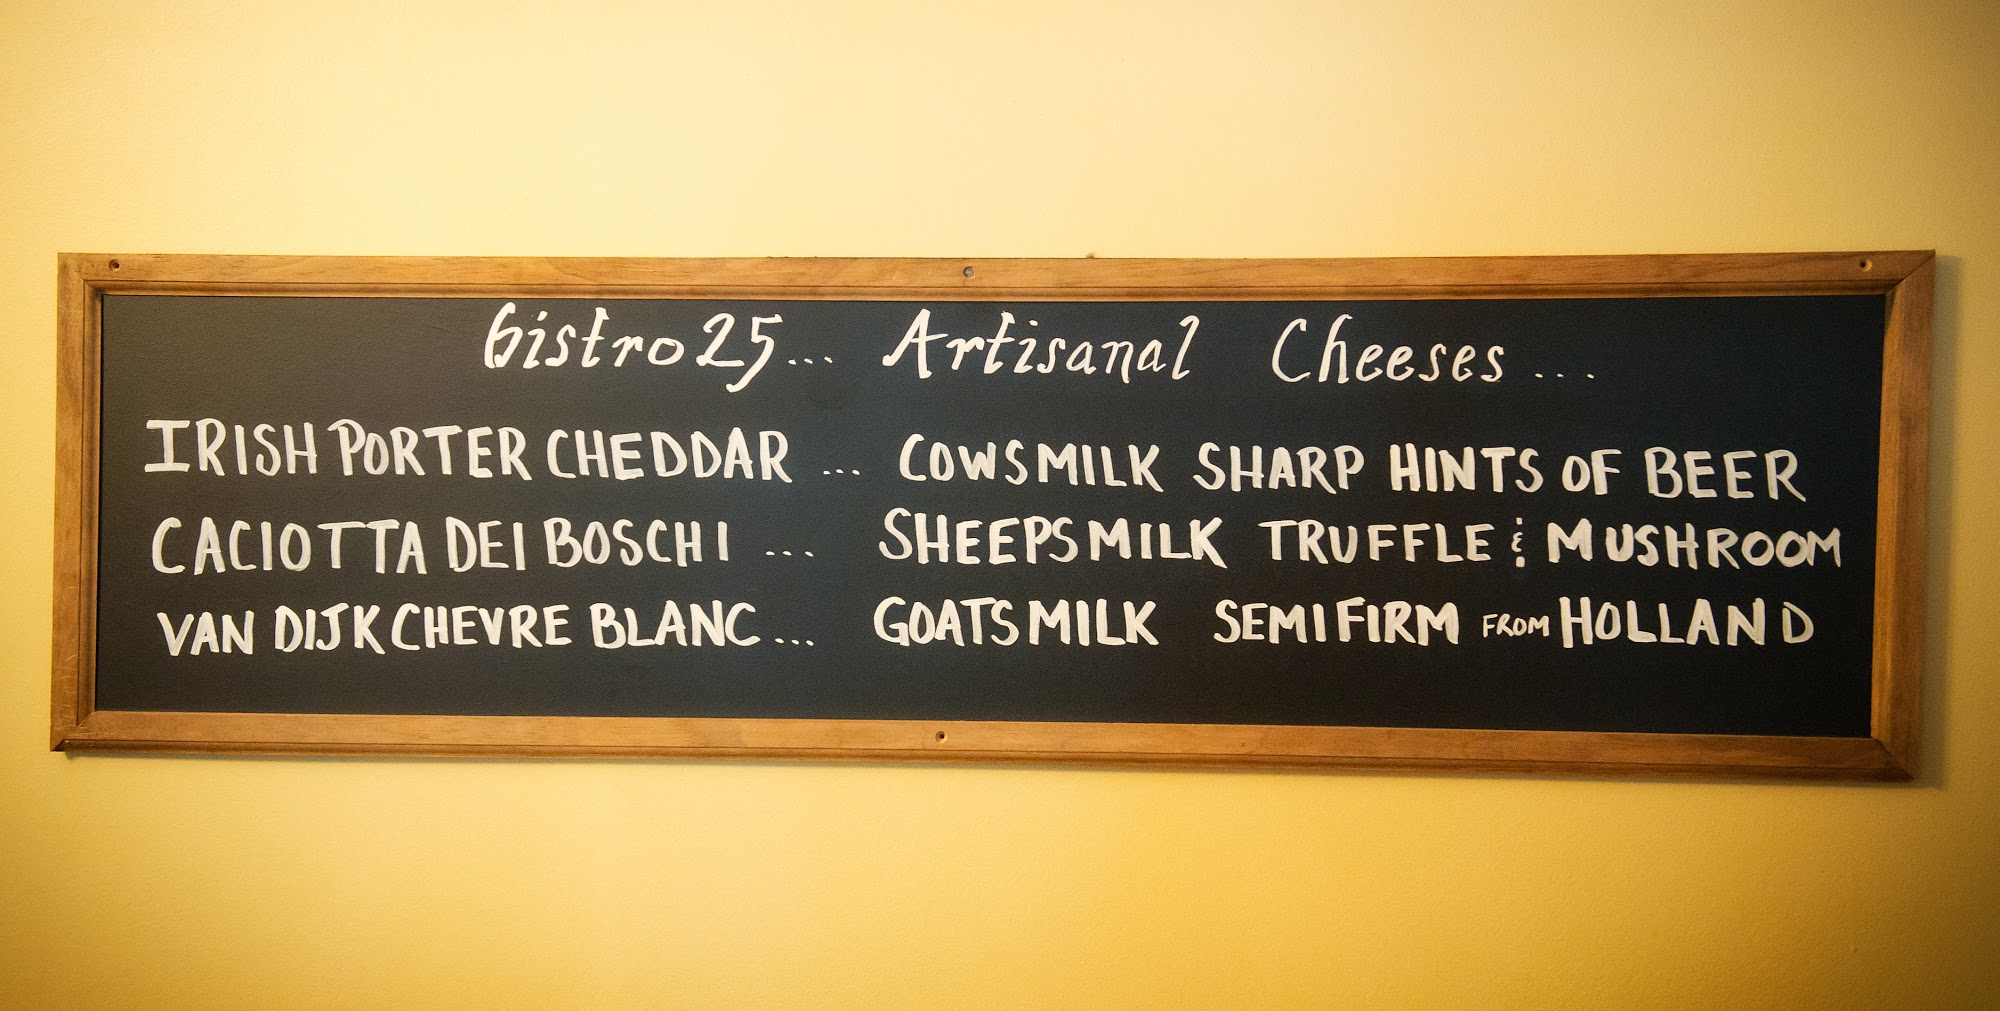 bistro 25... Artisanal Cheeses...
IRISH PORTER CHEDDAR ... COWSMILK SHARP HINTS OF BEER
CACIOTTA DEI BOSCHI ... SHEEPSMILK TRUFFLE & MUSHROOM
VAN DIJK CHEVRE BLANC... GOATSMILK SEMIFIRM FROM HOLLAND